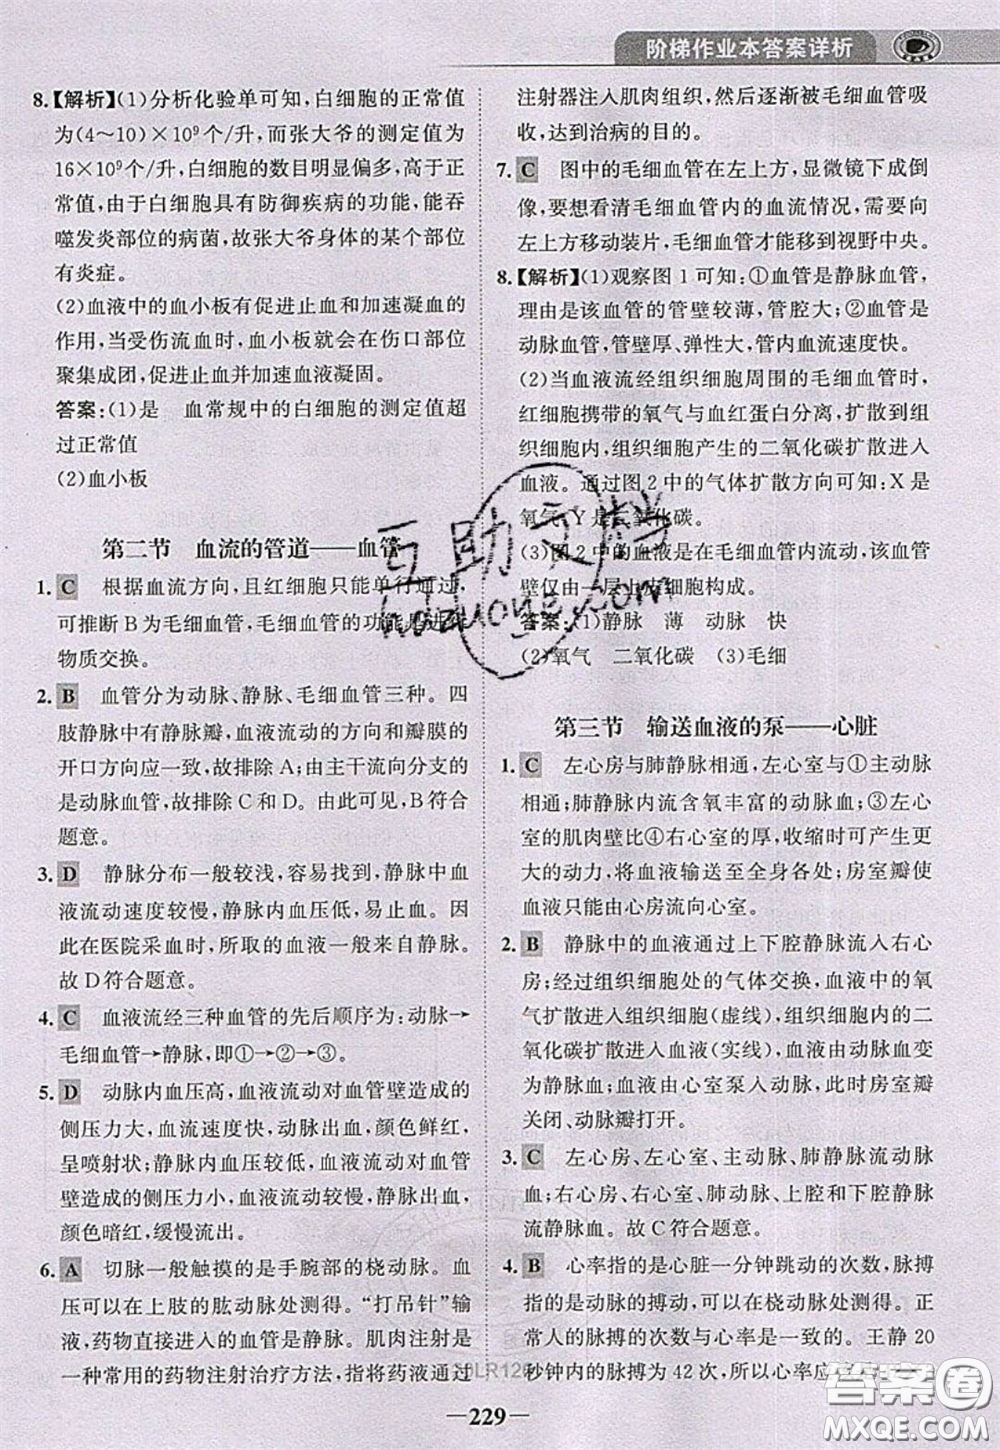 阶梯作业本答案详析
8.【解析】(1)分析化验单可知,白细胞的正常值
为(4～10)×10⁹个/升,而张大爷的测定值为
16×10⁹个/升,白细胞的数目明显偏多,高于正
常值,由于白细胞具有防御疾病的功能,能吞
噬发炎部位的病菌。故张大爷身体的某个部位
有炎症。
(2)血液中的血小板有促进止血和加速凝血的
作用,当受伤流血时,血小板就会在伤口部位
聚集成团,促进止血和加速血液凝固。
答案:(1)是 血常规中的白细胞的测定值超
过正常值
(2)血小板
第二节 血流的管道——血管
1. C 根据血流方向,且红细胞只能单行通过,
可推断B为毛细血管,毛细血管的功能是进行
物质交换。
2. B 血管分为动脉、静脉、毛细血管三种。四
肢静脉中有静脉瓣,血液流动的方向和瓣膜的
开口方向应一致,故排除A;由主干流向分支的
是动脉血管,故排除C和D。由此可见,B符合
题意。
3. D 静脉分布一般较浅,容易找到。静脉中血
液流动速度较慢,静脉内血压低,易止血。因
此在医院采血时,所取的血液一般来自静脉。
故D符合题意。
4. C 血液流经三种血管的先后顺序为:动脉→
毛细血管→静脉,即①→②→③。
5. D 动脉内血压高,血液流动对血管壁造成的
侧压力大,血流速度快,动脉出血,颜色鲜红,
呈喷射状;静脉内血压较低,血液流动对血管
壁造成的侧压力小,血流速度慢,静脉出血,
颜色暗红,缓慢流出。
6. A 切脉一般触摸的是手腕部的桡动脉。血
压可以在上肢的肱动脉处测得。“打吊针”输
液,药物直接进入的血管是静脉。肌肉注射是
一种常用的药物注射治疗方法,指将药液通过
注射器注入肌肉组织,然后逐渐被毛细血管吸
收,达到治病的目的。
7. C 图中的毛细血管在左上方,显微镜下成倒
像,要想看清毛细血管内的血流情况,需要向
左上方移动装片,毛细血管才能移到视野中央。
8.【解析】(1)观察图1可知:①血管是静脉血管,
理由是该血管的管壁较薄,管腔大;②血管是
动脉血管,管壁厚、弹性大,管内血流速度快。
(2)当血液流经组织细胞周围的毛细血管时,
红细胞携带的氧气与血红蛋白分离,扩散到组
织细胞内,组织细胞产生的二氧化碳扩散进入
血液。通过图2中的气体扩散方向可知:X是
氧气,Y是二氧化碳。
(3)图2中的血液在毛细血管内流动,该血管
壁仅由一层上皮细胞构成。
答案:(1)静脉 薄 动脉 快
(2)氧气 二氧化碳 (3)毛细
第三节 输送血液的泵——心脏
1. C 左心房与肺静脉相通,左心室与①主动脉
相通;肺静脉内流含氧丰富的动脉血;③左心
室的肌肉壁比④右心室的厚,收缩时可产生更
大的动力,将血液输送至全身各处;房室瓣使
血液只能由心房流向心室。
2. B 静脉中的血液通过上下腔静脉流入右心
房;经过组织细胞处的气体交换,血液中的氧
气扩散进入组织细胞(虚线),组织细胞内的二
氧化碳扩散进入血液(实线),血液由动脉血变
为静脉血;血液由心室泵入动脉,此时房室瓣
关闭、动脉瓣打开。
3. C 左心房、左心室、主动脉、肺静脉流动脉
血;右心房、右心室、上下腔静脉、肺动脉
流静脉血。故C符合题意。
4. B 心率指的是心脏一分钟跳动的次数,脉搏
指的是动脉的搏动,可以在桡动脉处测得。正
常人的脉搏的次数和心率是一致的。王静20
秒钟内的脉搏为42次,所以心率应
229
互助文档
hdzuone.com
答案圈
MXQE.COM